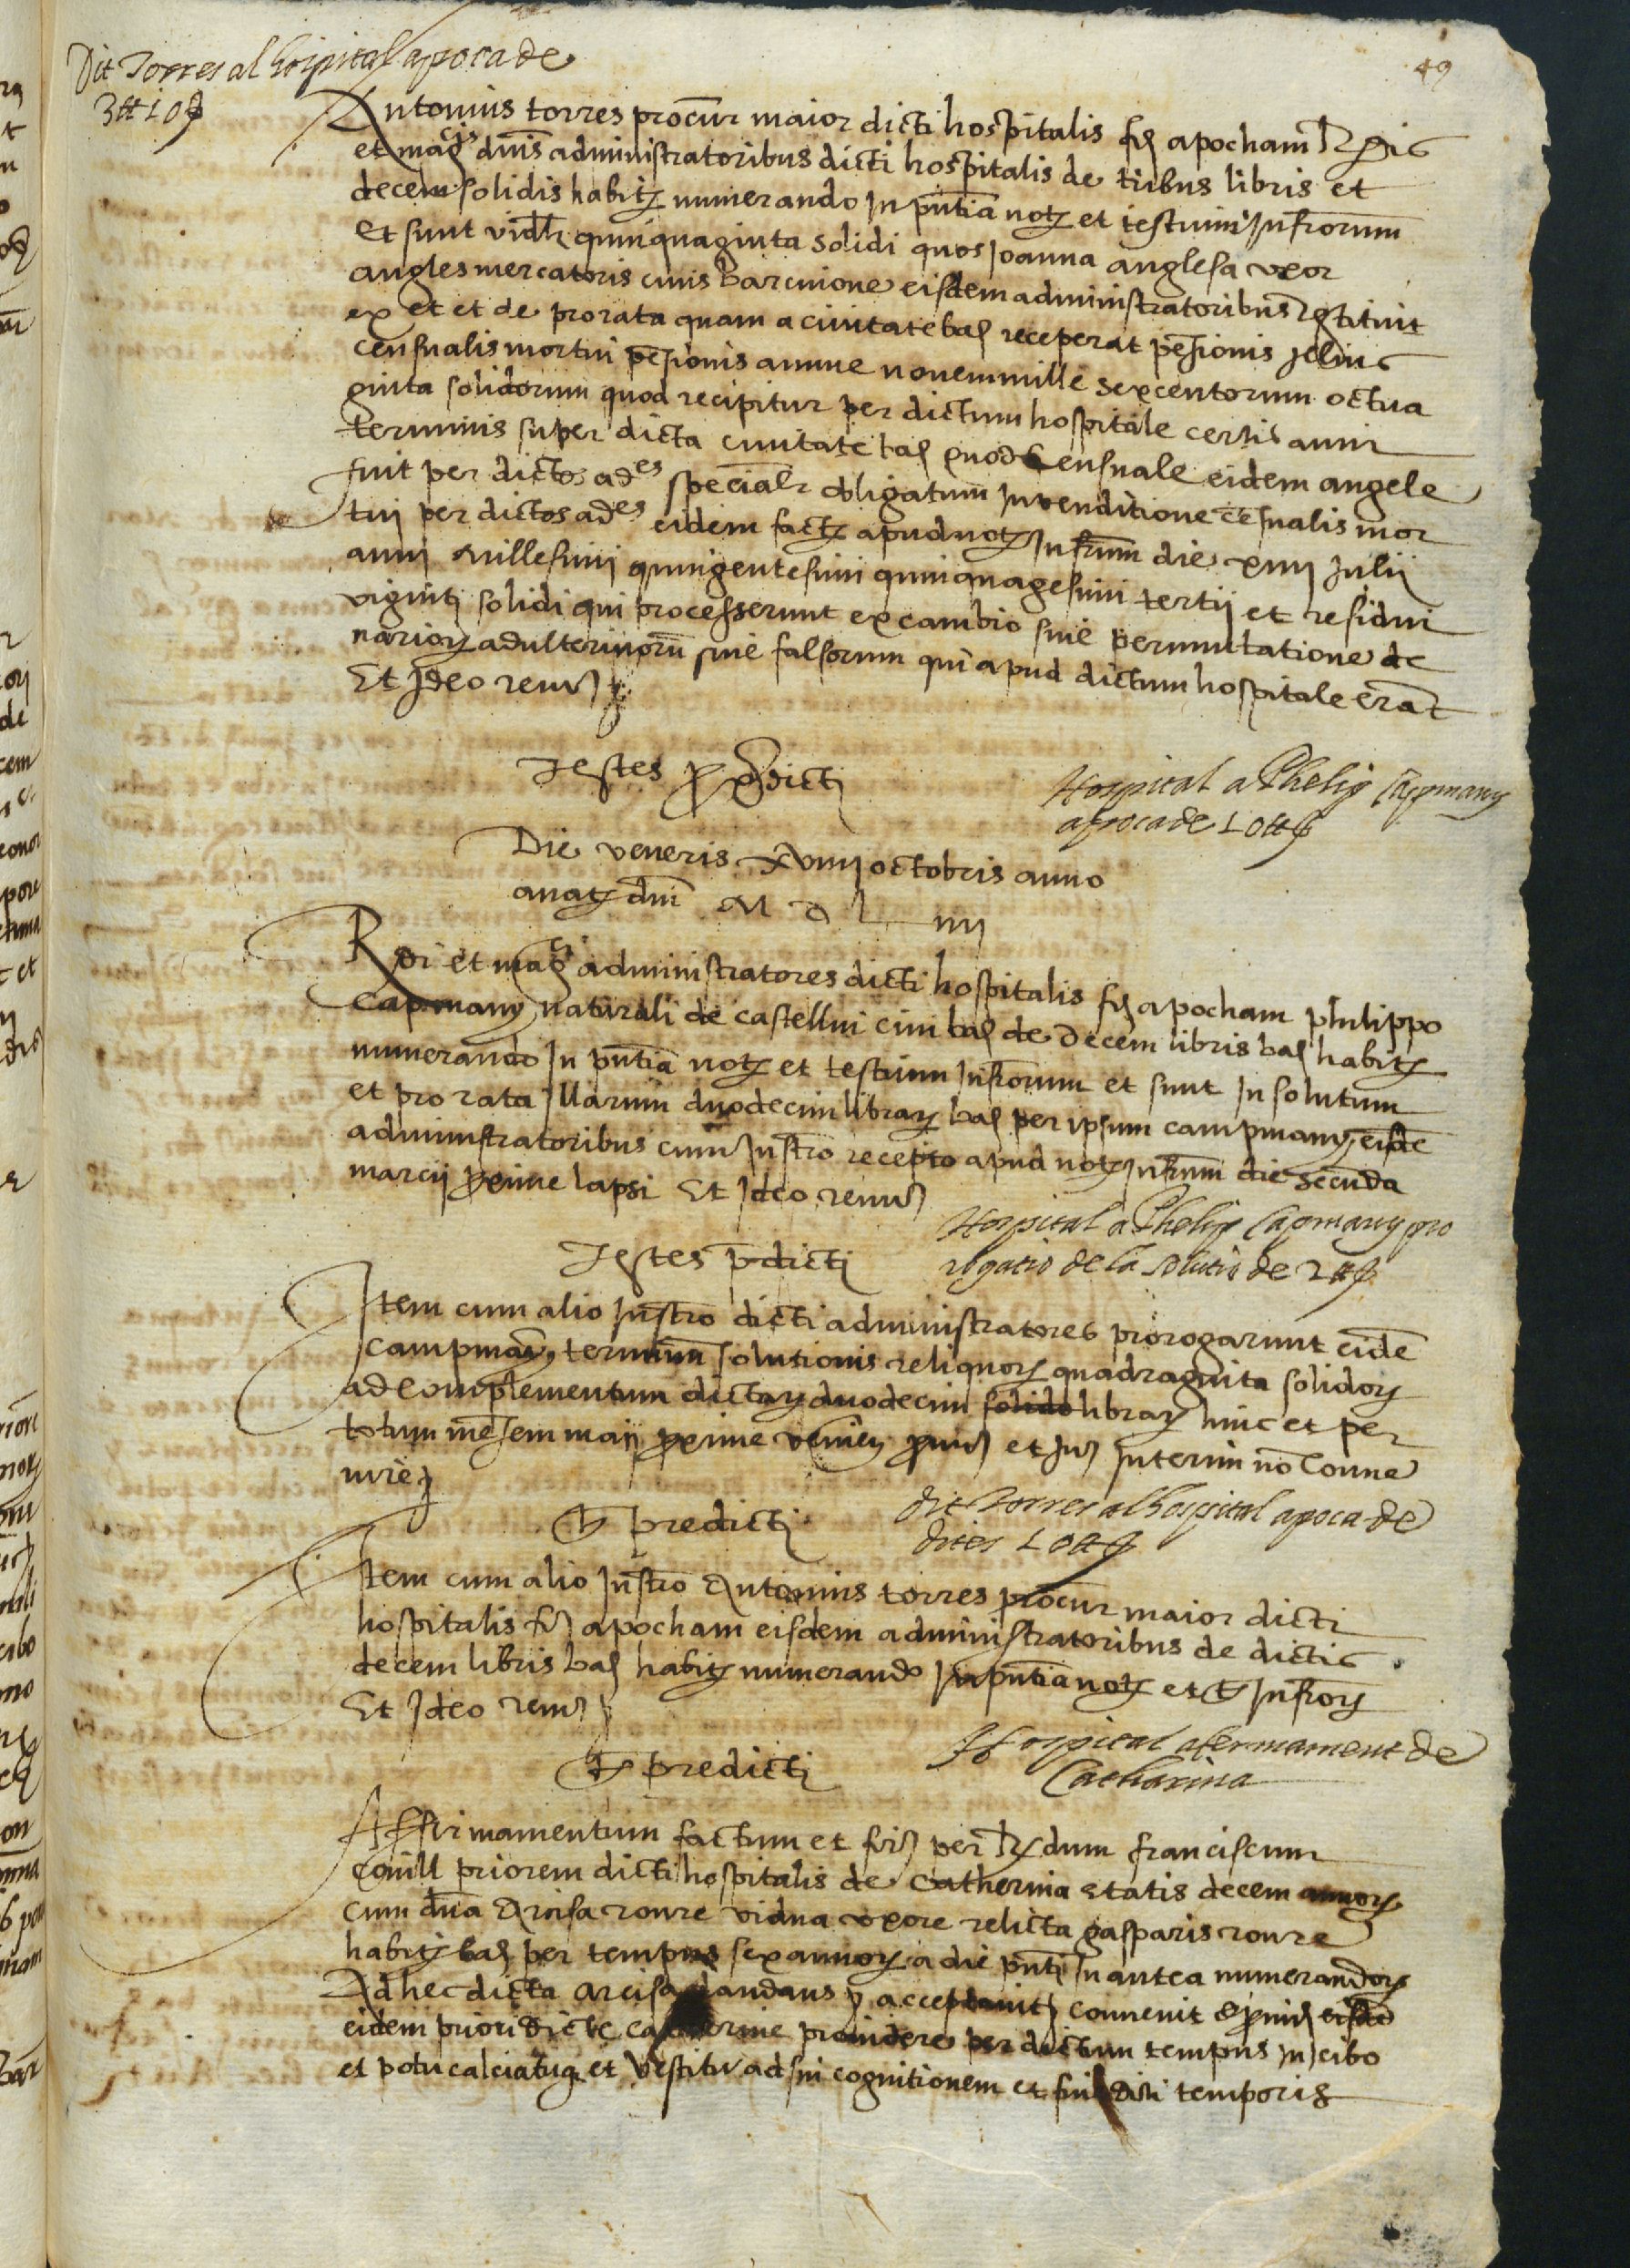 49
Dit Torres al hospital apoca de
3 ₶ 10 ß
Antonius torres procur maior dicti hospitalis f. apocham Rdis
et magcis dnis administratoribus dicti hospitalis de tribus libris et
decem solidis habit. numerando In pntia not. et testium Infrorum
Et sunt vidlt quinquaginta solidi quos Joanna anglesa vxor
angles mercatoris ciuis barcinone eisdem administratoribus restituit
ex et et de prorata quam a ciuitate bar. receperat pensionis illius
censualis mortui pensionis annue nouem mille sexcentorum octua
ginta solidorum quod recipitur per dictum hospitale certis anni
terminis super dicta ciuitate bar. quod Censuale eidem angele
fuit per dictos ades specialr obligatum In venditione censualis mor
tui per dictos ades eidem fact. apud not. Infrum die xiiij Julij
anni Millesimi quingentesimi quinquagesimi tertij et residui
viginti solidi qui processerunt ex cambio siue permutatione de
narior. adulterinoru siue falsorum qui apud dictum hospitale erat
Et Ideo renu.
Testes proxe dicti
Hospital a Phelip Capmany
apoca de 10 ₶ ß
Die veneris xviiij octobris anno
a nat. dni M D L iiij
Rdi et magci administratores dicti hospitalis f. apocham philippo
Capmany naturali de castellui ciui bar. de decem libris bar. habit.
numerando In pntia not. et testium Infrorum et sunt In solutum
et pro rata Illarum duodecim librar. bar. per ipsum campmany eisde
administratoribus cum Instro recepto apud not. Infrum die secunda
marcij proxime lapsi Et Ideo renu.
Testes pdicti
Hospital a Phelip Capmany pro
rogatio de la solutio de 2 ₶ ß
Item cum alio Instro dicti administratores prorogarunt eide
Campmany terminum solutionis reliquor. quadraginta solidor.
ad Complementum dictar. duodecim solido librar. hinc et per
totum mensem maij proxime venien. promi. et Iu. Interim no Conue
nire
Ts predicti
dit Torres al hospital apoca de
dites 10 ₶ ß
Item cum alio Instro Antonius torres procur maior dicti
hospitalis f. apocham eisdem administratoribus de dictis
decem libris bar. habit. numerando In pntia not. et ts Infror.
Et Ideo renu.
Ts predicti
Hospital afermament de
Catharina
Affirmamentum factum et fir. per Rdum franciscum
Couill priorem dicti hospitalis de Catherina etatis decem annor.
cum dna Arcisa roure vidua vxore relicta gasparis roure
habit. bar. per tempus sex annor. a die pnti In antea numerandor.
Ad hec dicta arcisa laudans acceptauit conuenit et promi. eisde
eidem priori dicte Catherine prouidere per dictum tempus In cibo
et potu calciatuq. et Vestitu ad sui cognitionem et fini dicti temporis